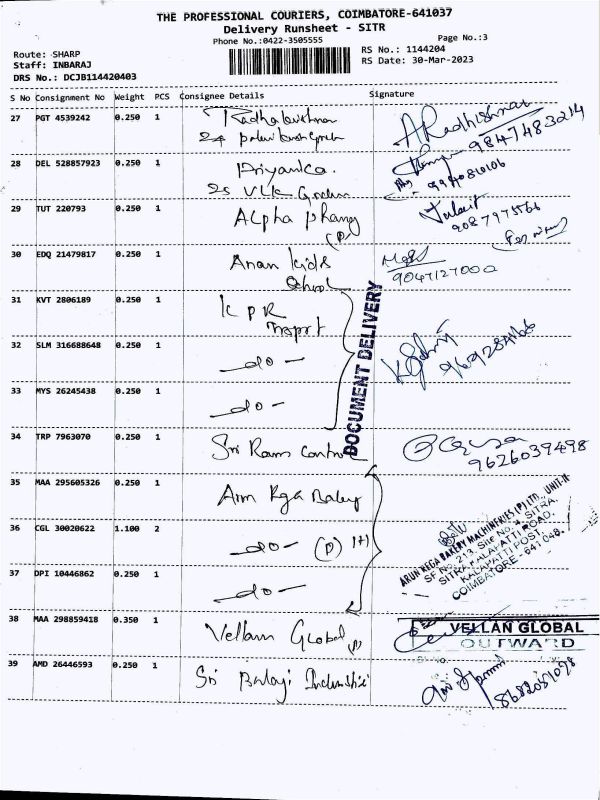 THE PROFESSIONAL COURIERS, COIMBATORE-641037
Delivery Runsheet - SITR
Phone No.:0422-3505555
Page No.:3
Route: SHARP
RS No.: 1144204
Staff: INBARAJ
RS Date: 30-Mar-2023
DRS No.: DCJB114420403
S No Consignment No Weight PCS Consignee Details Signature
27 PGT 4539242 0.250 1 Radhakrishnan
24
9847483214
28 DEL 528857923 0.250 1 Priyanka
25 VLK Garden
29 TUT 220793 0.250 1 Alpha
(P)
30 EDQ 21479817 0.250 1 Anan kids
School
9047127000
31 KVT 2806189 0.250 1 K P R
DOCUMENT DELIVERY
32 SLM 316688648 0.250 1 -do-
33 MYS 26245438 0.250 1 -do-
34 TRP 7963070 0.250 1 Sri Ram
9626039498
35 MAA 295605326 0.250 1
ARUN REGA BAKERY MACHINERIES (P) LTD., UNIT-II
SF No. 213, Site No. 4, SITRA,
SITRA KALAPATTI ROAD,
KALAPATTI POST,
COIMBATORE - 641 048.
36 CGL 30020622 1.100 2 -do- (P)
37 DPI 10446862 0.250 1 -do-
38 MAA 298859418 0.350 1 Vellan Global
VELLAN GLOBAL
OUTWARD
39 AMD 26446593 0.250 1 Sri Balaji